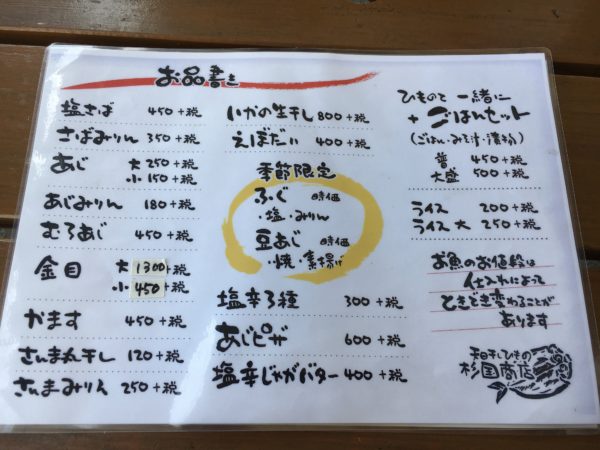 お品書き
塩さば 450+税
さばみりん 350+税
あじ 大 250+税
小 150+税
あじみりん 180+税
むろあじ 450+税
金目 大 1300+税
小 450+税
かます 450+税
さんま丸干し 120+税
さんまみりん 250+税
いかの生干し 800+税
えぼだい 400+税
季節限定
ふぐ 時価
・塩・みりん
豆あじ 時価
・焼・素揚げ
塩辛3種 300+税
あじピザ 600+税
塩辛じゃがバター 400+税
ひものと一緒に
+ごはんセット
(ごはん・みそ汁・漬物)
普 450+税
大盛 500+税
ライス 200+税
ライス大 250+税
お魚のお値段は
仕入れによって
ときどき変わることが
あります
天日干しひもの
杉国商店